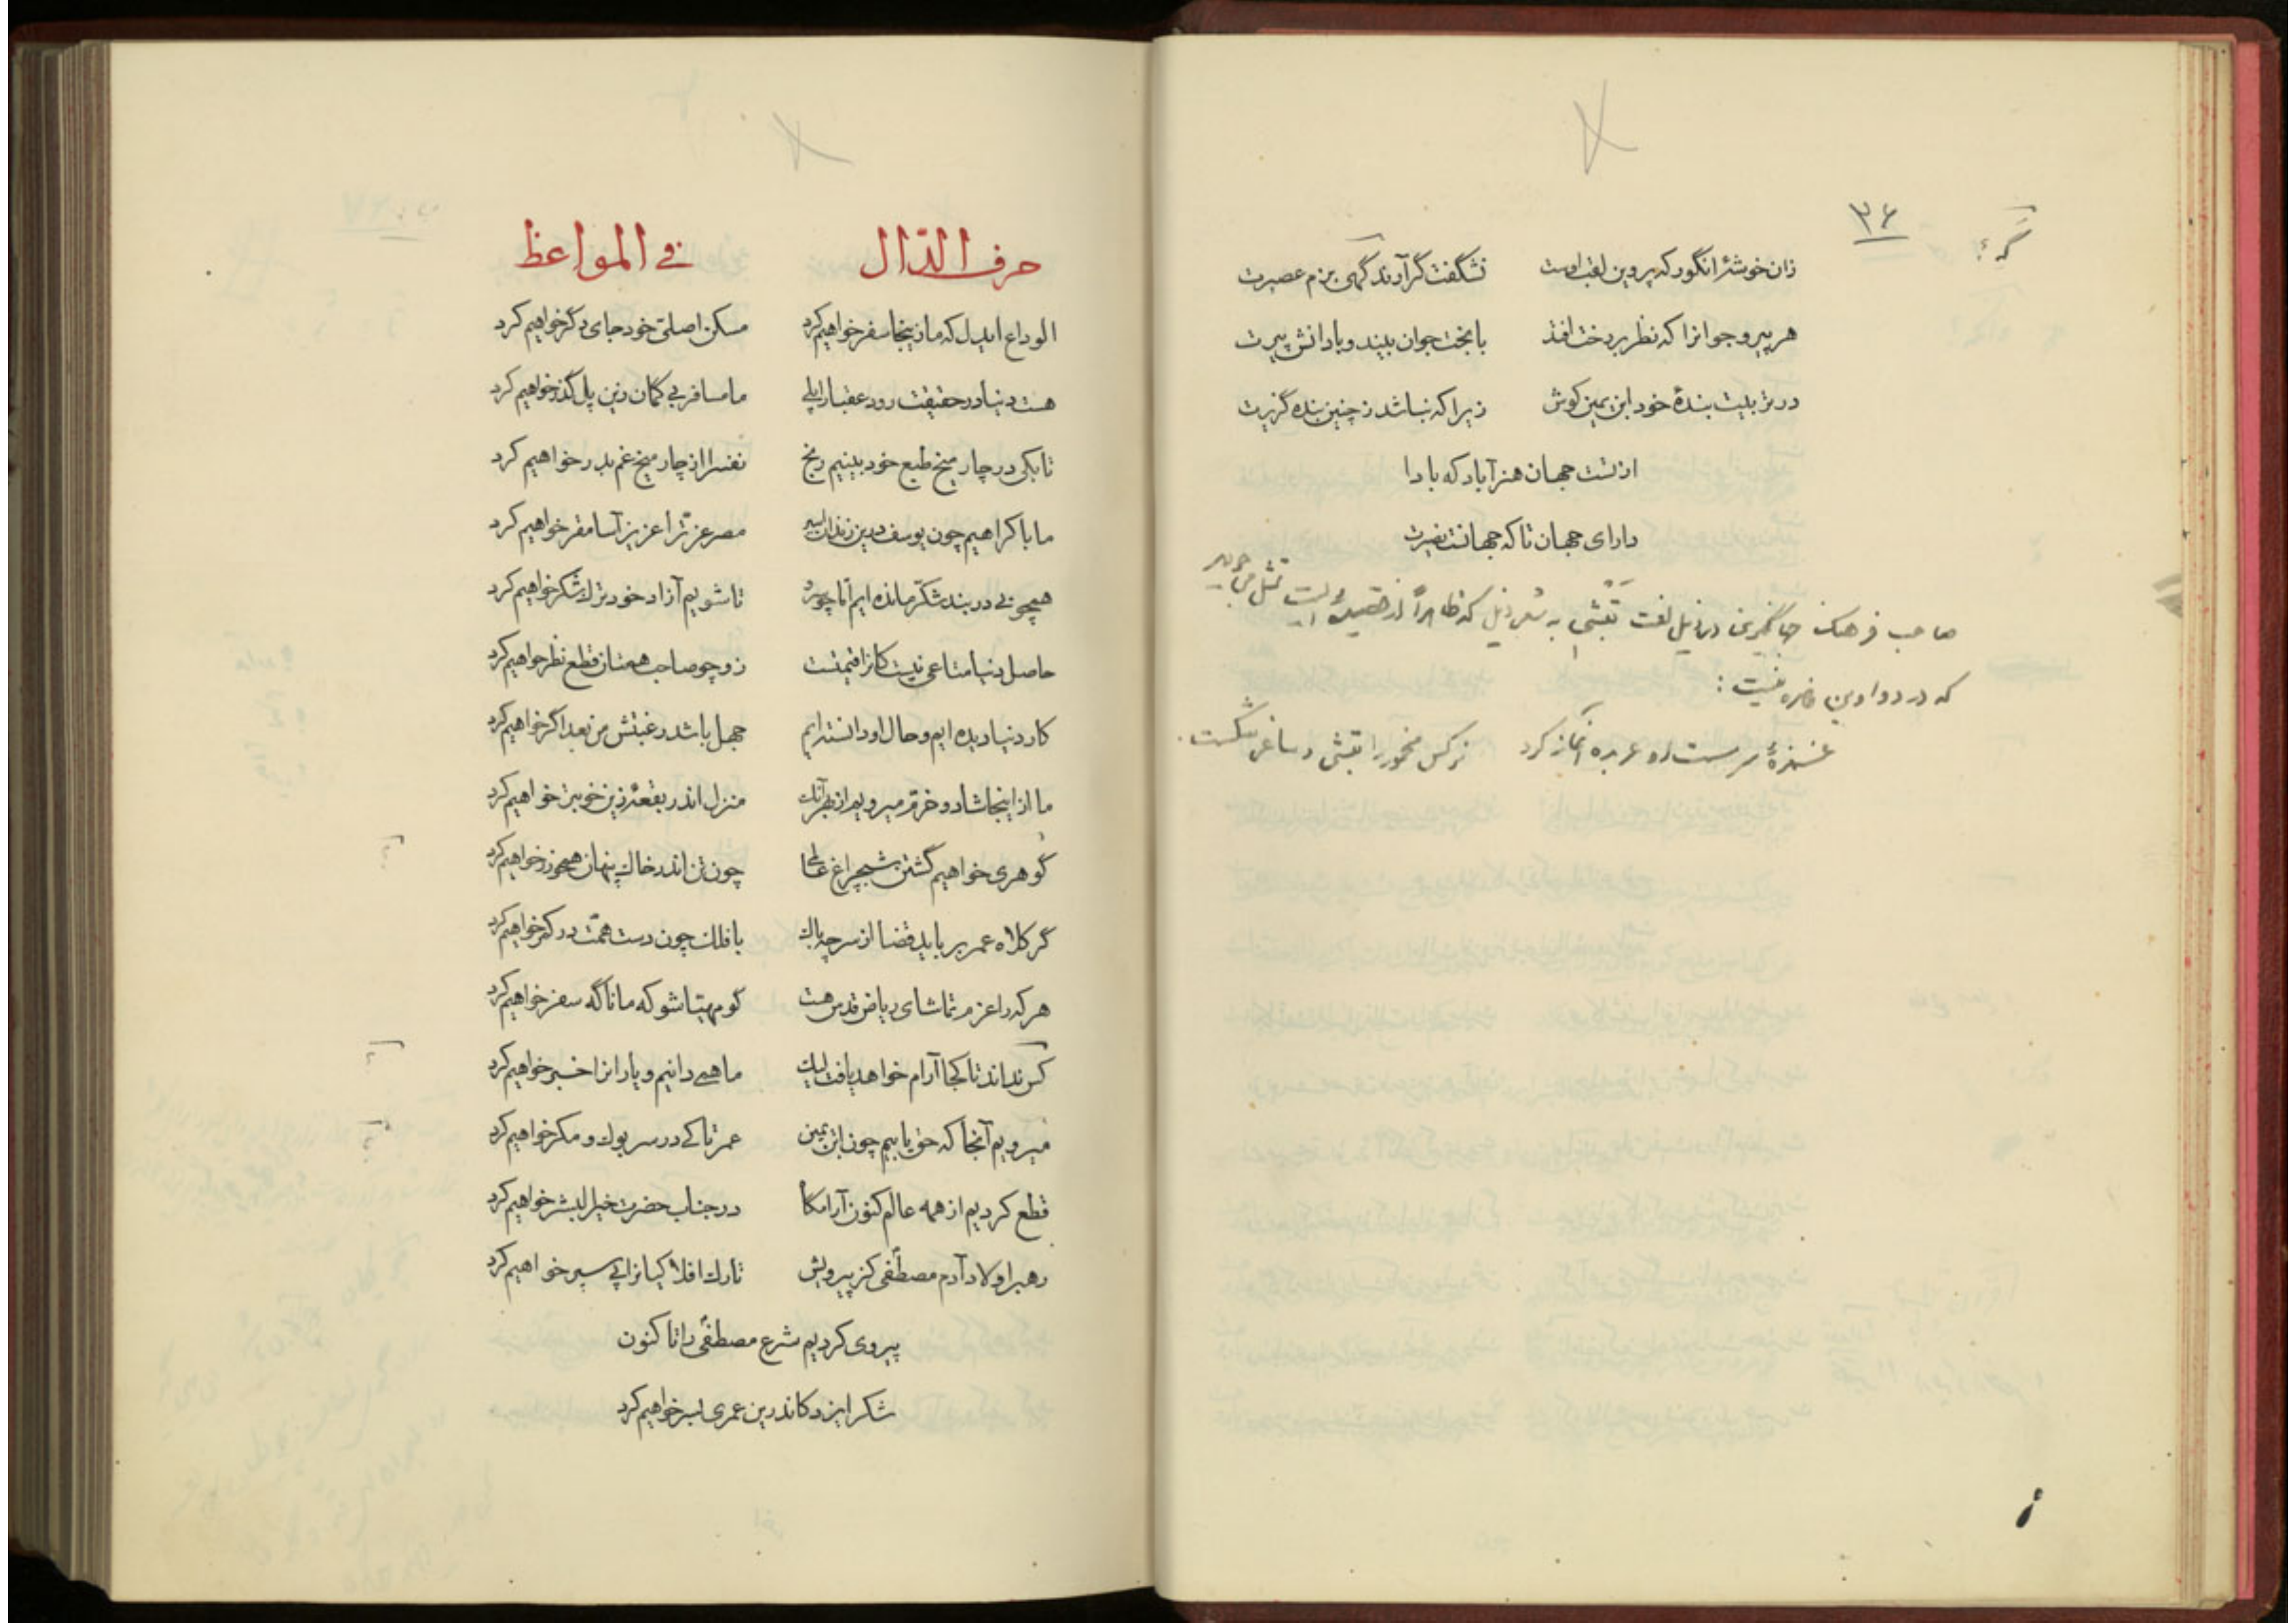 ۳۶
زان خوشهٔ انگور که پروین لقب اوست نشگفت گر آرند گهی بزم عصیرت
هر پیر و جوانرا که نظر بر رخت افتد با بخت جوان بیند و با دانش پیرت
در تربیت بندهٔ خود ابن یمین کوش زیرا که نباشد ز چنین بنده گزیرت
از تست جهان هنر آباد که بادا
دارای جهان تا که جهانست نصیرت
صاحب فرهنگ جهانگیری در ذیل لغت تبشی به شعر ذیل که ظاهراً از قصیدهٔ است تمثل می‌جوید
که در دواوین حاضره نیست :
غمزهٔ سرمست او عربده آغاز کرد نرگس مخمور را تبشی و ساغر شکست
حرف الدّال فی المواعظ
الوداع ایدل که ما زینجا سفر خواهیم کرد مسکن اصلیّ خود جای دگر خواهیم کرد
هست دنیا در حقیقت رود عقبا را پلی ما مسافر بی گمان زین پل گذر خواهیم کرد
تا بکی در چار میخ طبع خود بینیم رنج نفس را از چار میخ غم بدر خواهیم کرد
ما باکراهیم چون یوسف درین زندان اسیر مصر عزّت را عزیز آسا مقر خواهیم کرد
همچو نی در بند شکّر مانده ایم امّا چو سرو تا شویم آزاد خود ترک شکر خواهیم کرد
حاصل دنیا متاعی نیست کانرا قیمتست زو چو صاحب همتان قطع نظر خواهیم کرد
کار دنیا دیده ایم و حال او دانسته ایم جهل باشد رغبتش من بعد اگر خواهیم کرد
ما از اینجا شاد و خرّم میرویم از بهر آنک منزل اندر بقعهٔ زین خوبتر خواهیم کرد
گوهری خواهیم گشتن شبچراغ عالمی چون تن اندر خاک پنهان همچو زر خواهیم کرد
گر کلاه عمر بر باید قضا از سر چه باک با فلک چون دست همّت در کمر خواهیم کرد
هر که را عزم تماشای ریاض قدس هست گو مهیّا شو که ما ناگه سفر خواهیم کرد
کس نداند تا کجا آرام خواهد یافت لیک ما همی دانیم و یارانرا خبر خواهیم کرد
میرویم آنجا که حق یابیم چون ابن یمین عمر تا کی در سر بوک و مگر خواهیم کرد
قطع کردیم از همه عالم کنون آرامگاه در جناب حضرت خیر البشر خواهیم کرد
رهبر اولاد آدم مصطفی کز پیرویش تارک افلاکیانرا پی سپر خواهیم کرد
پیروی کردیم شرع مصطفی را تا کنون
شکر ایزد کاندرین عمری بسر خواهیم کرد